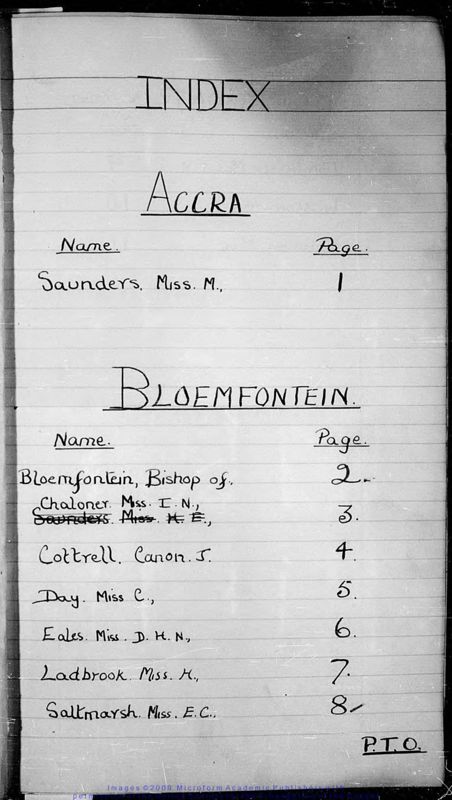 INDEX
ACCRA
Name. Page.
Saunders. Miss. M., 1
BLOEMFONTEIN.
Name. Page.
Bloemfontein, Bishop of. 2.
Chaloner. Miss. I. N.,
Saunders. Miss. H. E., 3.
Cottrell. Canon. J. 4.
Day. Miss C., 5.
Eales. Miss. D. H. N., 6.
Ladbrook. Miss. H., 7.
Saltmarsh. Miss. E. C., 8
P.T.O.
Images ©2008 Microform Academic Publishers